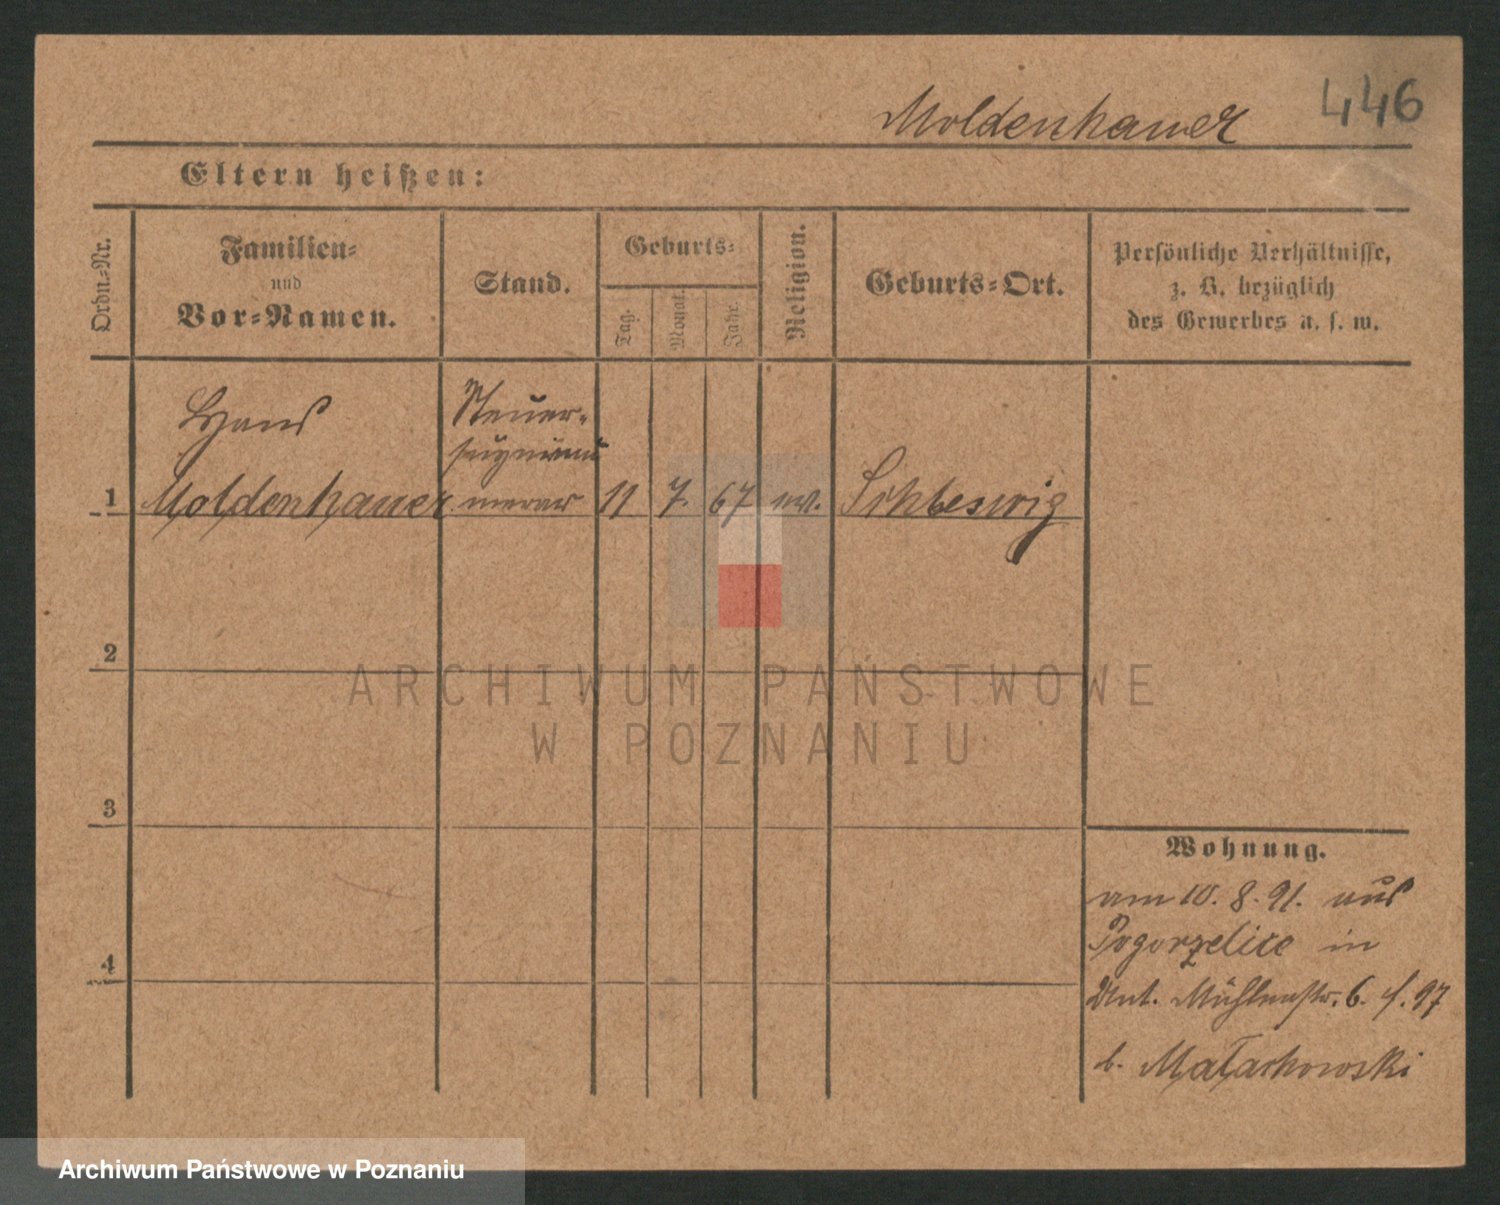 446
Moldenhauer
Eltern heißen:
Ordn.-Nr.
Familien-
und
Vor-Namen.
Stand.
Geburts-
Tag.
Monat.
Jahr.
Religion.
Geburts-Ort.
Persönliche Verhältnisse,
z. B. bezüglich
des Gewerbes u. s. w.
Hans
Steuer-
1 Moldenhauer 11 7. 67 ev. Schleswig
2
3
4
Wohnung.
am 10. 8. 91. aus
Pogorzelice in
Unt. Mühlenstr. 6.
b. Małachowski
ARCHIWUM PAŃSTWOWE
W POZNANIU
Archiwum Państwowe w Poznaniu